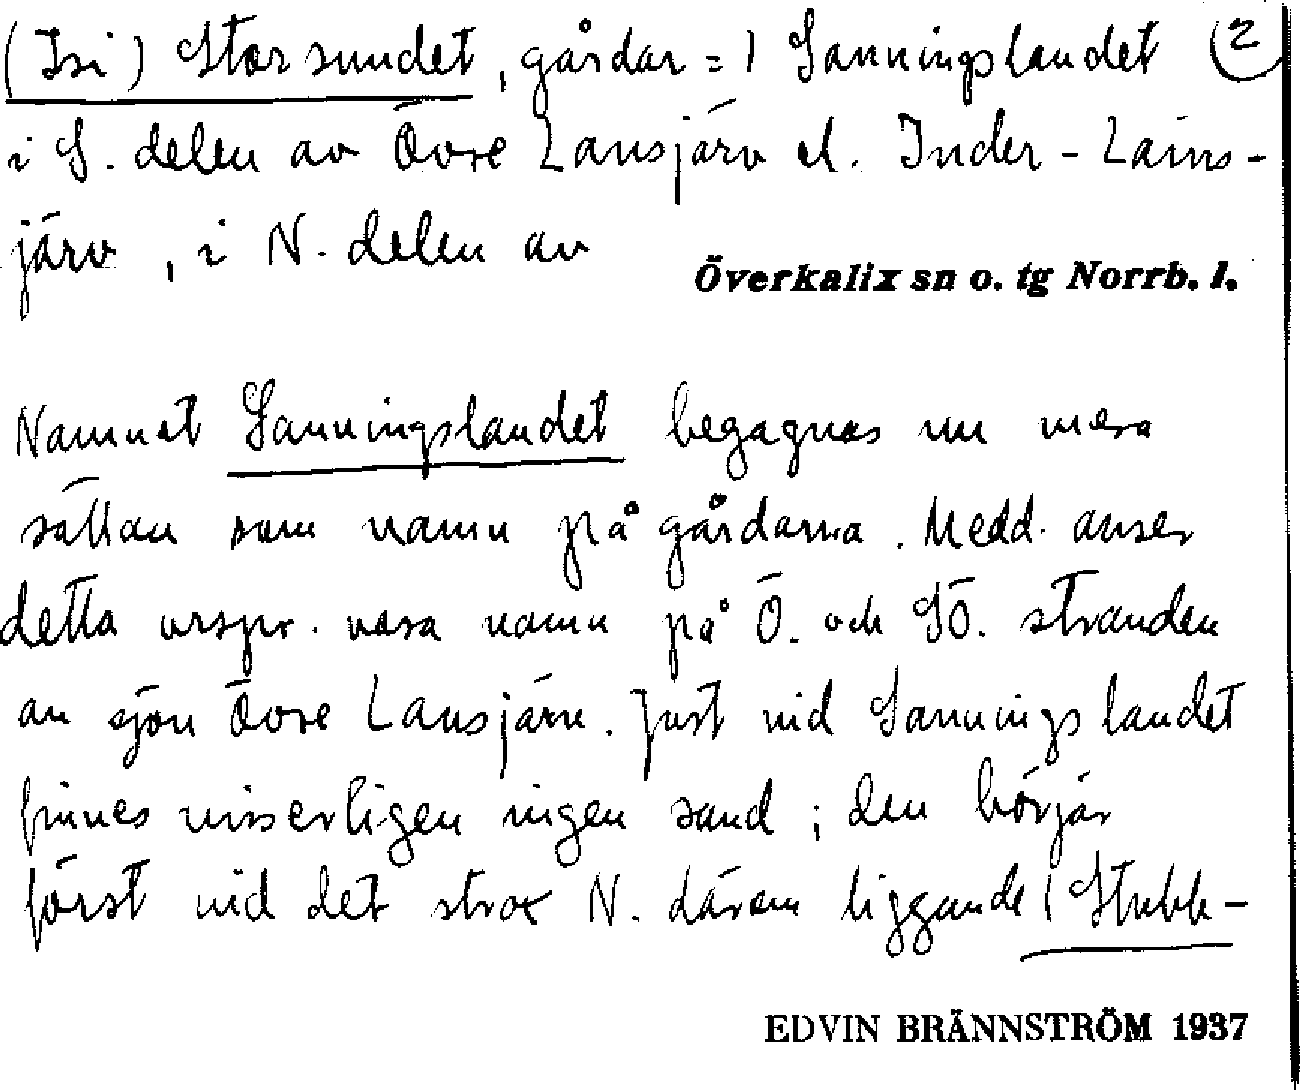 (Isi) Storsundet, gårdar = 1 Sanningslandet (2)
i S. delen av Övre Lansjärv el. Inder-Lains-
järv, i N. delen av
Överkalix sn o. tg Norrb. l.
Namnet Sanningslandet begagnas nu mera
sällan som namn på gårdarna. Medd. anser
detta urspr. vara namn på Ö. och SÖ. stranden
av sjön Övre Lansjärv. Just vid Sanningslandet
finnes visserligen ingen sand; den börjar
först vid det strax N. därom liggande 1 Stubb-
EDVIN BRÄNNSTRÖM 1937